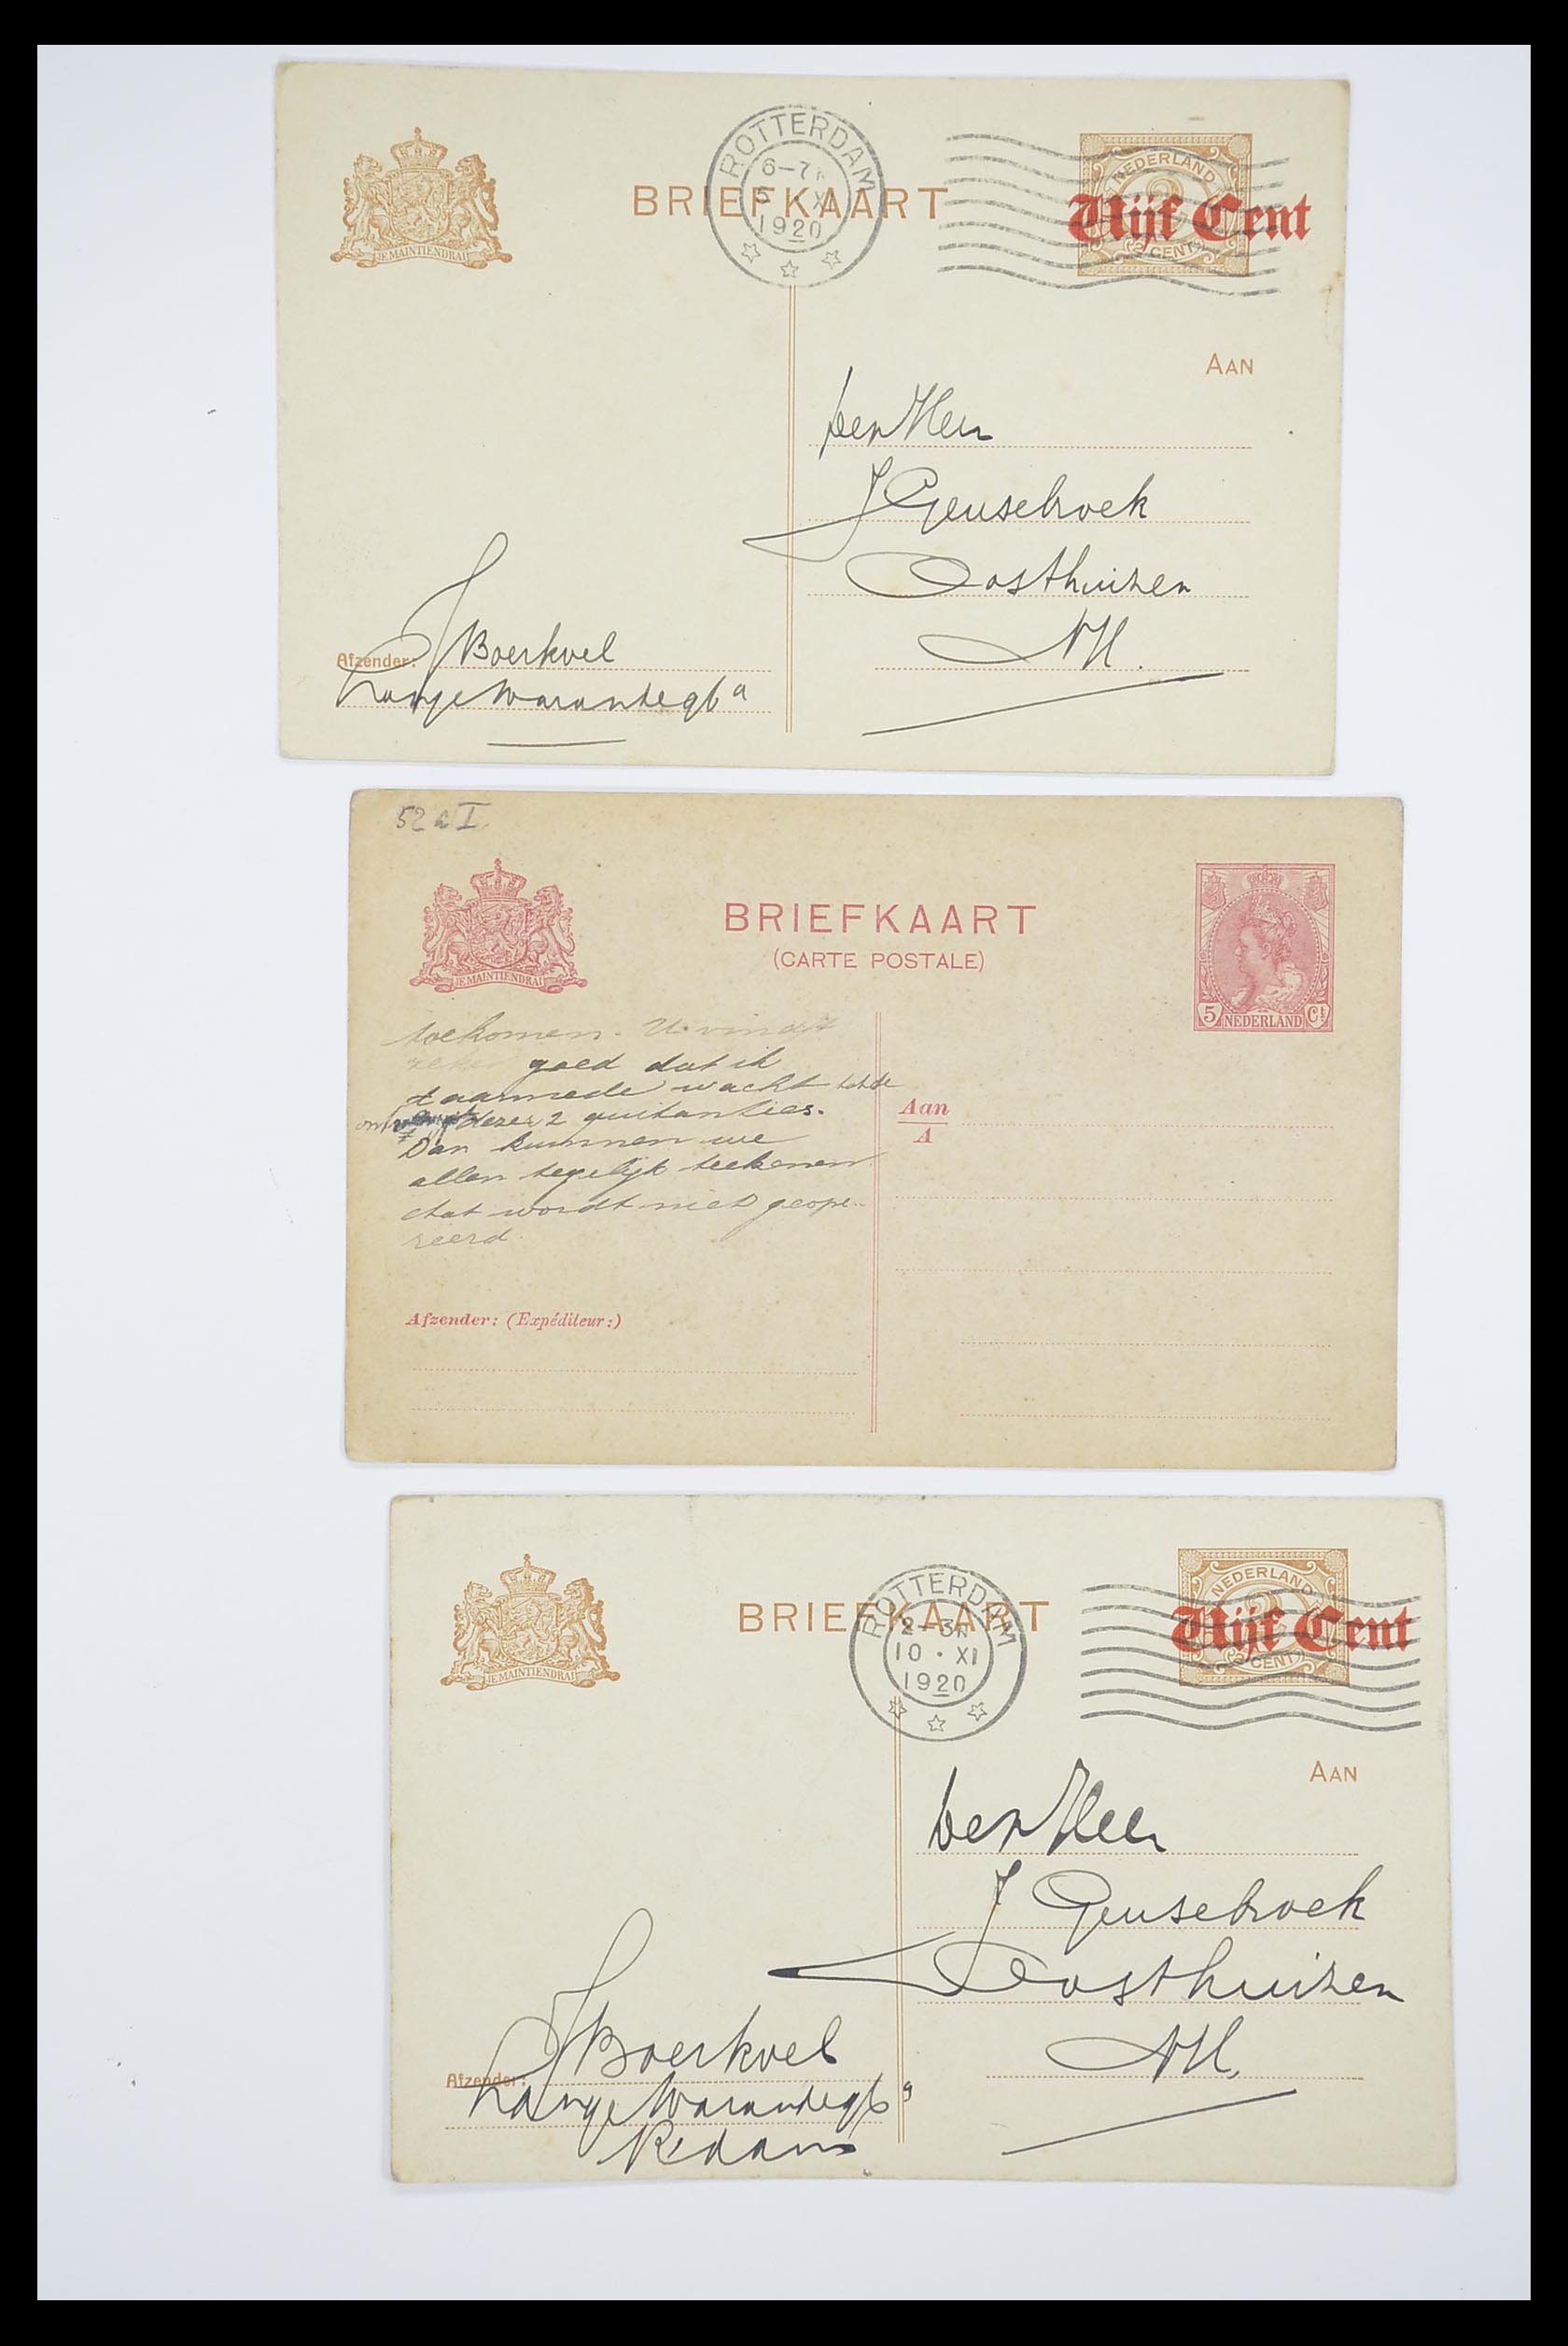 ROTTERDAM
6-7
5 XI
1920
BRIEFKAART
NEDERLAND
Vijf Cent
2
CENT
JE MAINTIENDRAI
AAN
den Heer
J Geusebroek
Oosthuizen
NH.
J Boerkoel
Afzender:
Lange Warande 96a
52 a I
BRIEFKAART
(CARTE POSTALE)
JE MAINTIENDRAI
5 NEDERLAND Ct.
toekomen. U vindt
zeker goed dat ik
daarmede wacht tot de
dezer 2 quitanties.
Dan kunnen we
allen tegelijk teekenen
dat wordt niet geope-
reerd.
Aan
A
Afzender: (Expéditeur:)
ROTTERDAM
2-3N
10 · XI
1920
BRIEFKAART
NEDERLAND
Vijf Cent
2
CENT
JE MAINTIENDRAI
AAN
den Heer
J Geusebroek
Oosthuizen
NH.
J Boerkoel
Afzender:
Lange Warande 96a
R'dam